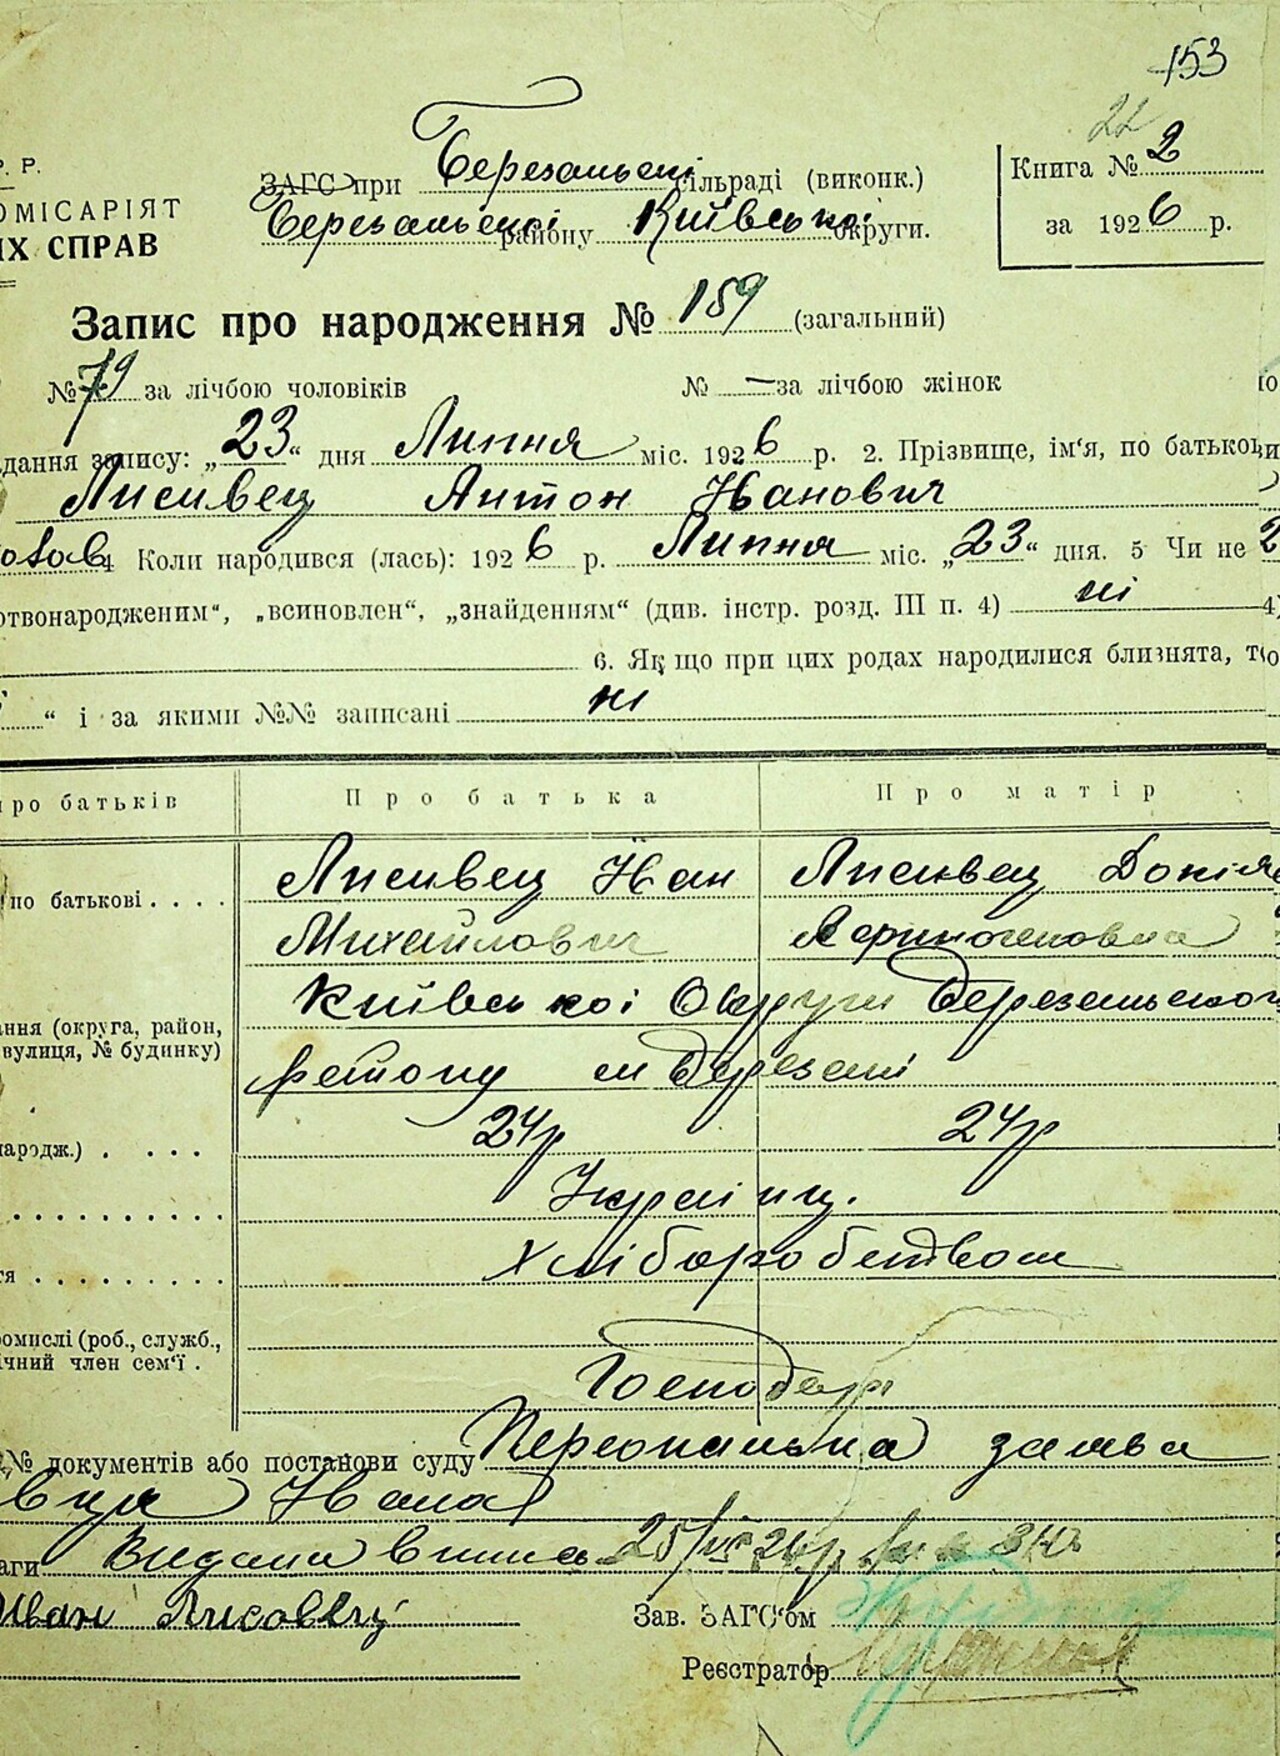 153
22
Р. Р.
ЗАГС при Березанській сільраді (виконк.)
Книга № 2
ОМІСАРІЯТ
ИХ СПРАВ
Березанської району Київської округи.
за 1926 р.
Запис про народження № 159 (загальний)
№ 79 за лічбою чоловіків № — за лічбою жінок
дання запису: „23“ дня Липня міс. 1926 р. 2. Прізвище, ім‘я, по батькові
Лисивец Антон Иванович
4 Коли народився (лась): 1926 р. Липня міс. „23“ дня. 5 Чи не
ртвонародженим“, „всиновлен“, „знайденням“ (див. інстр. розд. III п. 4) ні
6. Якщо при цих родах народилися близнята, то
“ і за якими №№ записані ні
про батьків Про батька Про матір
Лисивец Иван Лисивец
по батькові . . . . Михайлович
Київської Округи Березанського
ання (округа, район,
вулиця, № будинку)
району м Березані
народж.) . . . . 24р 24р
Україн ц.
ся Хліборобством
ромислі (роб., служб.,
ічний член сем‘ї .
Господарі
№ документів або постанови суду Персональна заява
вця Ивана
аги Видана виписъ 25/VII 26р
Иван Лисовец Зав. ЗАГС‘ом
Реєстратор